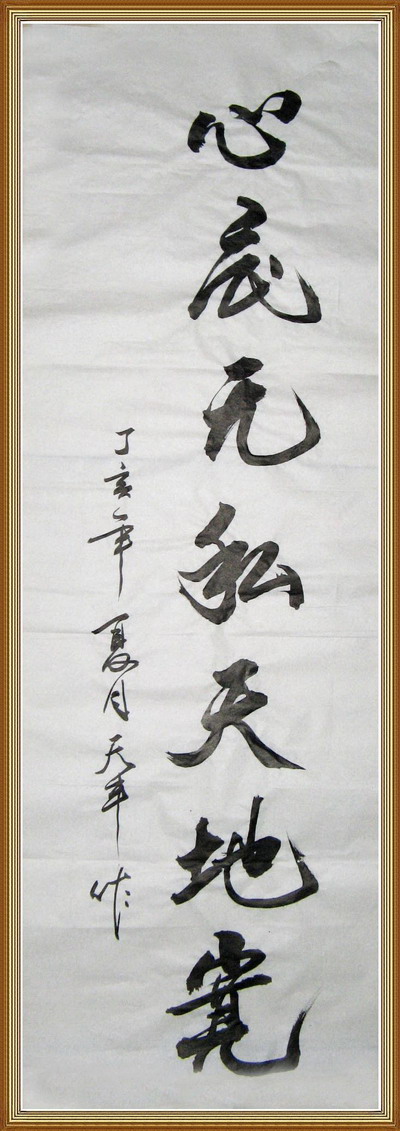 心底无私天地宽
丁亥年夏月天丰作